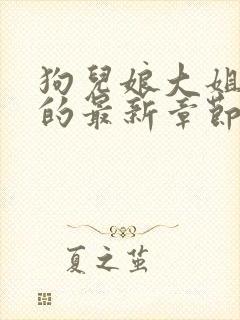 狗兒娘大姐
的最新章節
夏之茧